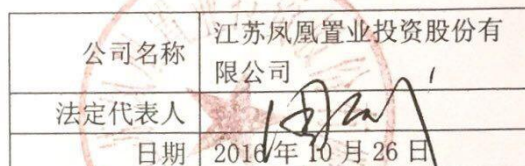 公司名称 江苏凤凰置业投资股份有
限公司
法定代表人
日期 2016年10月26日